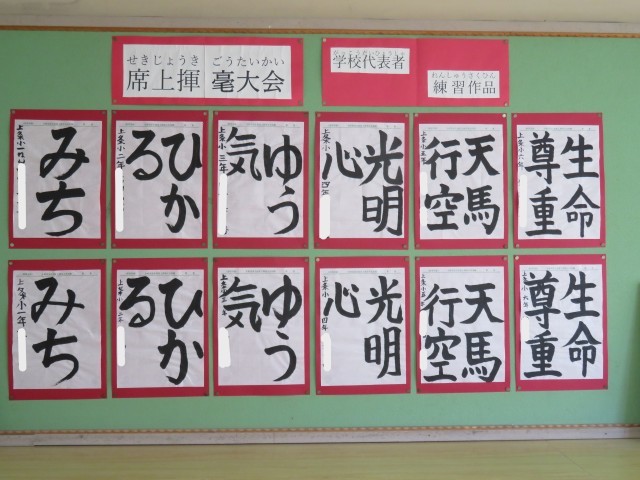 せきじょうき ごうたいかい
席上揮 毫大会
がっこうだいひょうしゃ
学校代表者
れんしゅうさくひん
練習作品
みち
上条小一年
ひか
る
上条小二年
ゆう
気
上条小三年
光明
心
上条小四年
天馬
行空
上条小五年
生命
尊重
上条小六年
みち
上条小一年
ひか
る
上条小二年
ゆう
気
上条小三年
光明
心
上条小四年
天馬
行空
上条小五年
生命
尊重
上条小六年